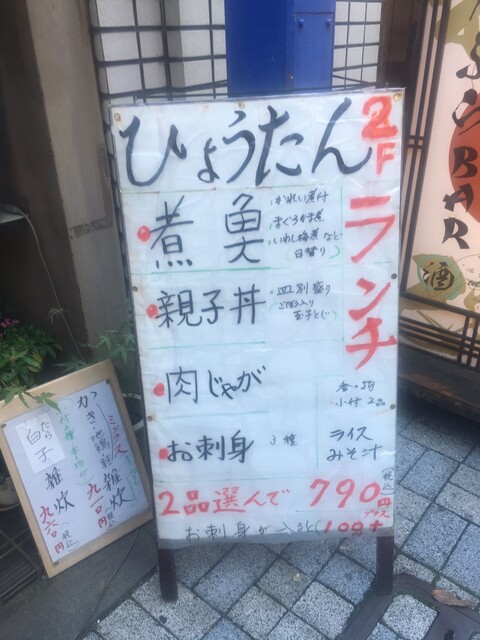 ひょうたん
2F
ランチ
煮魚
・かれい煮付
・まぐろかま煮
・いわし梅煮など
(日替り)
親子丼
・皿別盛り
(ごぼう入り
玉子とじ)
肉じゃが
お刺身 3種
香の物
小付2品
ライス
みそ汁
2品選んで 790円
税込
プラス
お刺身が入ると
ミックス
かき・地鶏 雑炊
九八〇円
白子 雑炊
九八〇円
BAR
酒